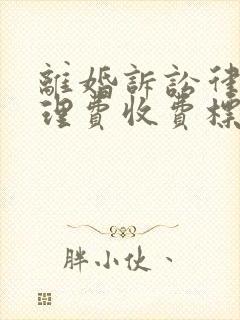 離婚訴訟律
理費收費標
胖小伙、